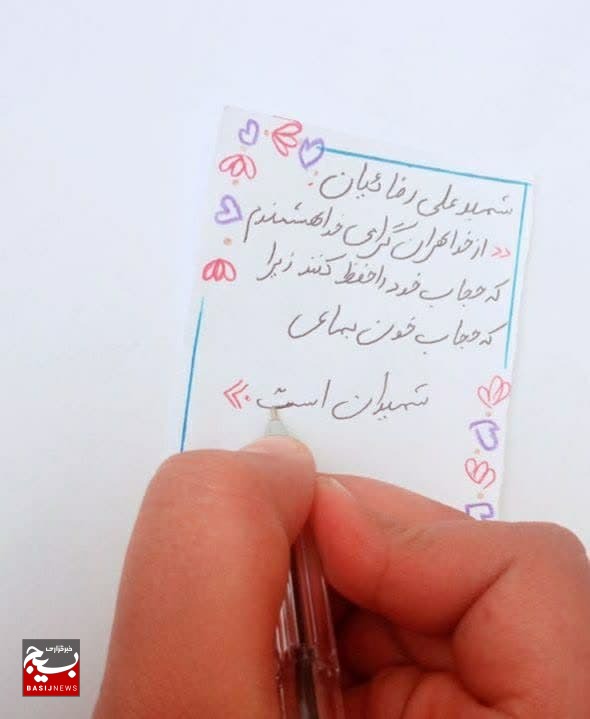 شهید علی رضائیان :
«از خواهران گرامی خواهشمندم
که حجاب خود را حفظ کنند زیرا
که حجاب خون بهای
شهیدان است.»
خبرگزاری
بسیج
BASIJNEWS